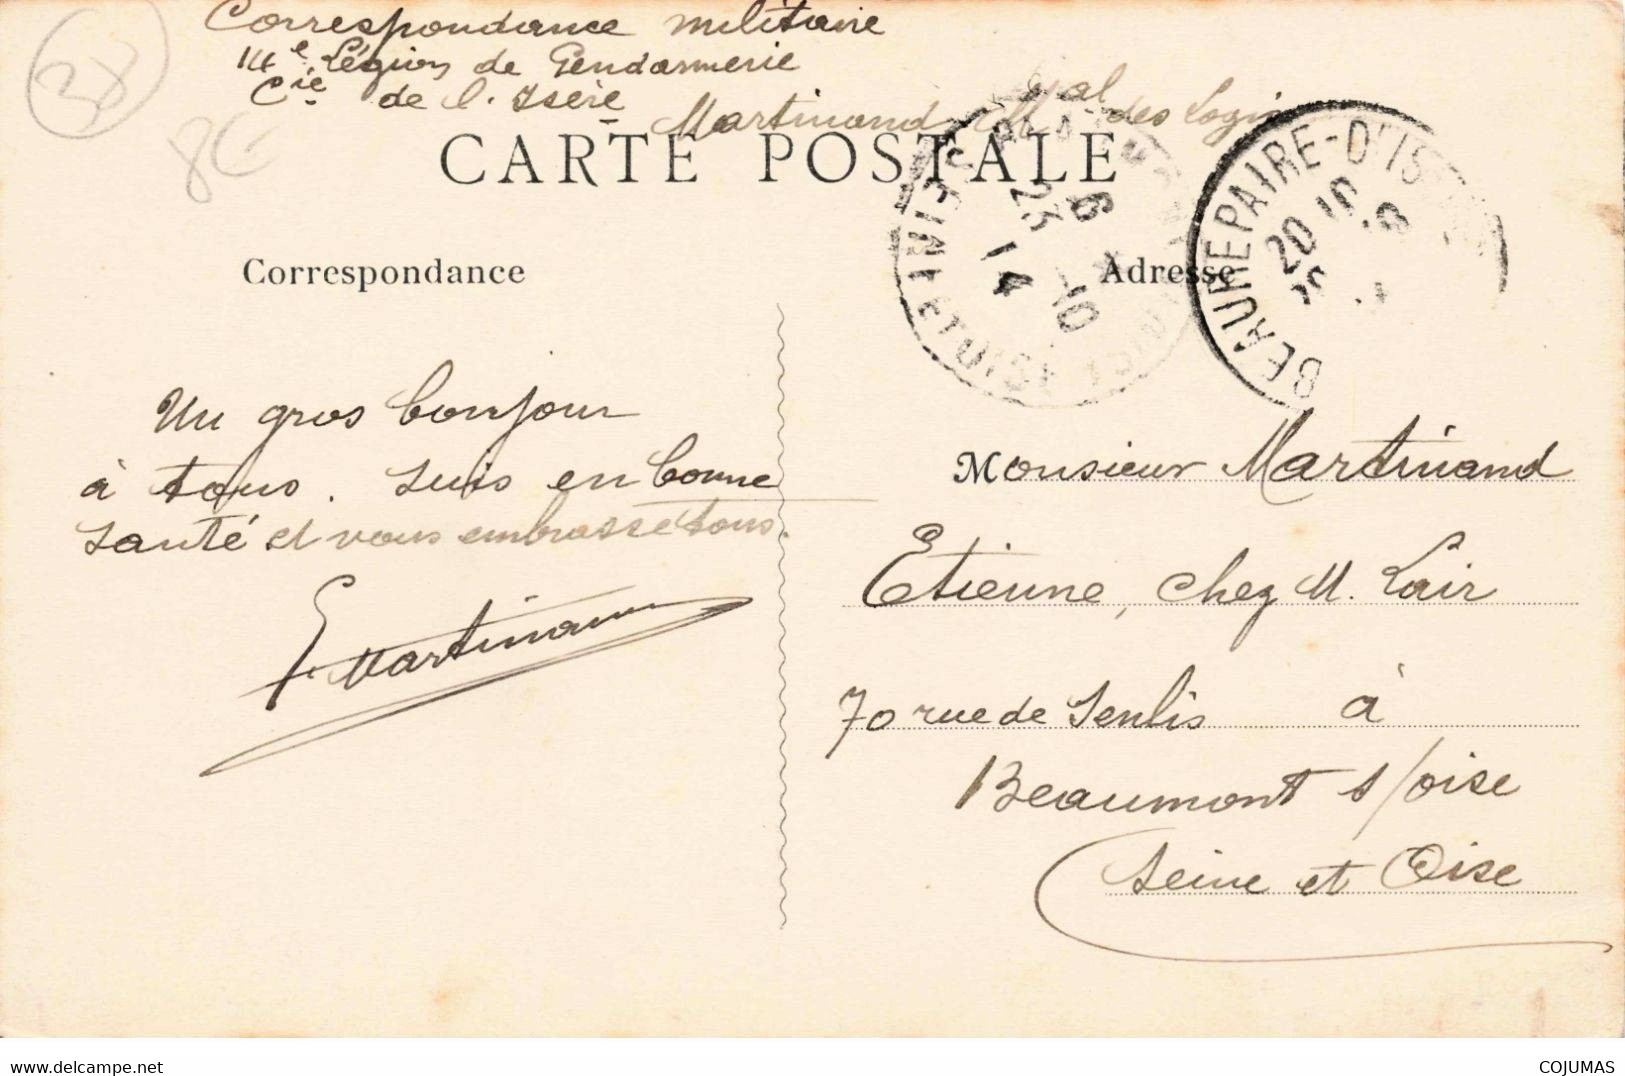 Correspondance militaire
14e Légion de Gendarmerie
Cie de l'Isère
Martinand Mal des Logis
38
8€
CARTE POSTALE
Correspondance
Adresse
SEINE-ET-OISE
6
23 -10
14
BEAUREPAIRE-D'IS
20 10
Un gros bonjour
à tous. Suis en bonne
santé et vous embrasse tous.
E. Martinand
Monsieur Martinand
Etienne, chez M. Lair
70 rue de Senlis à
Beaumont s/oise
Seine et Oise
delcampe.net
COJUMAS